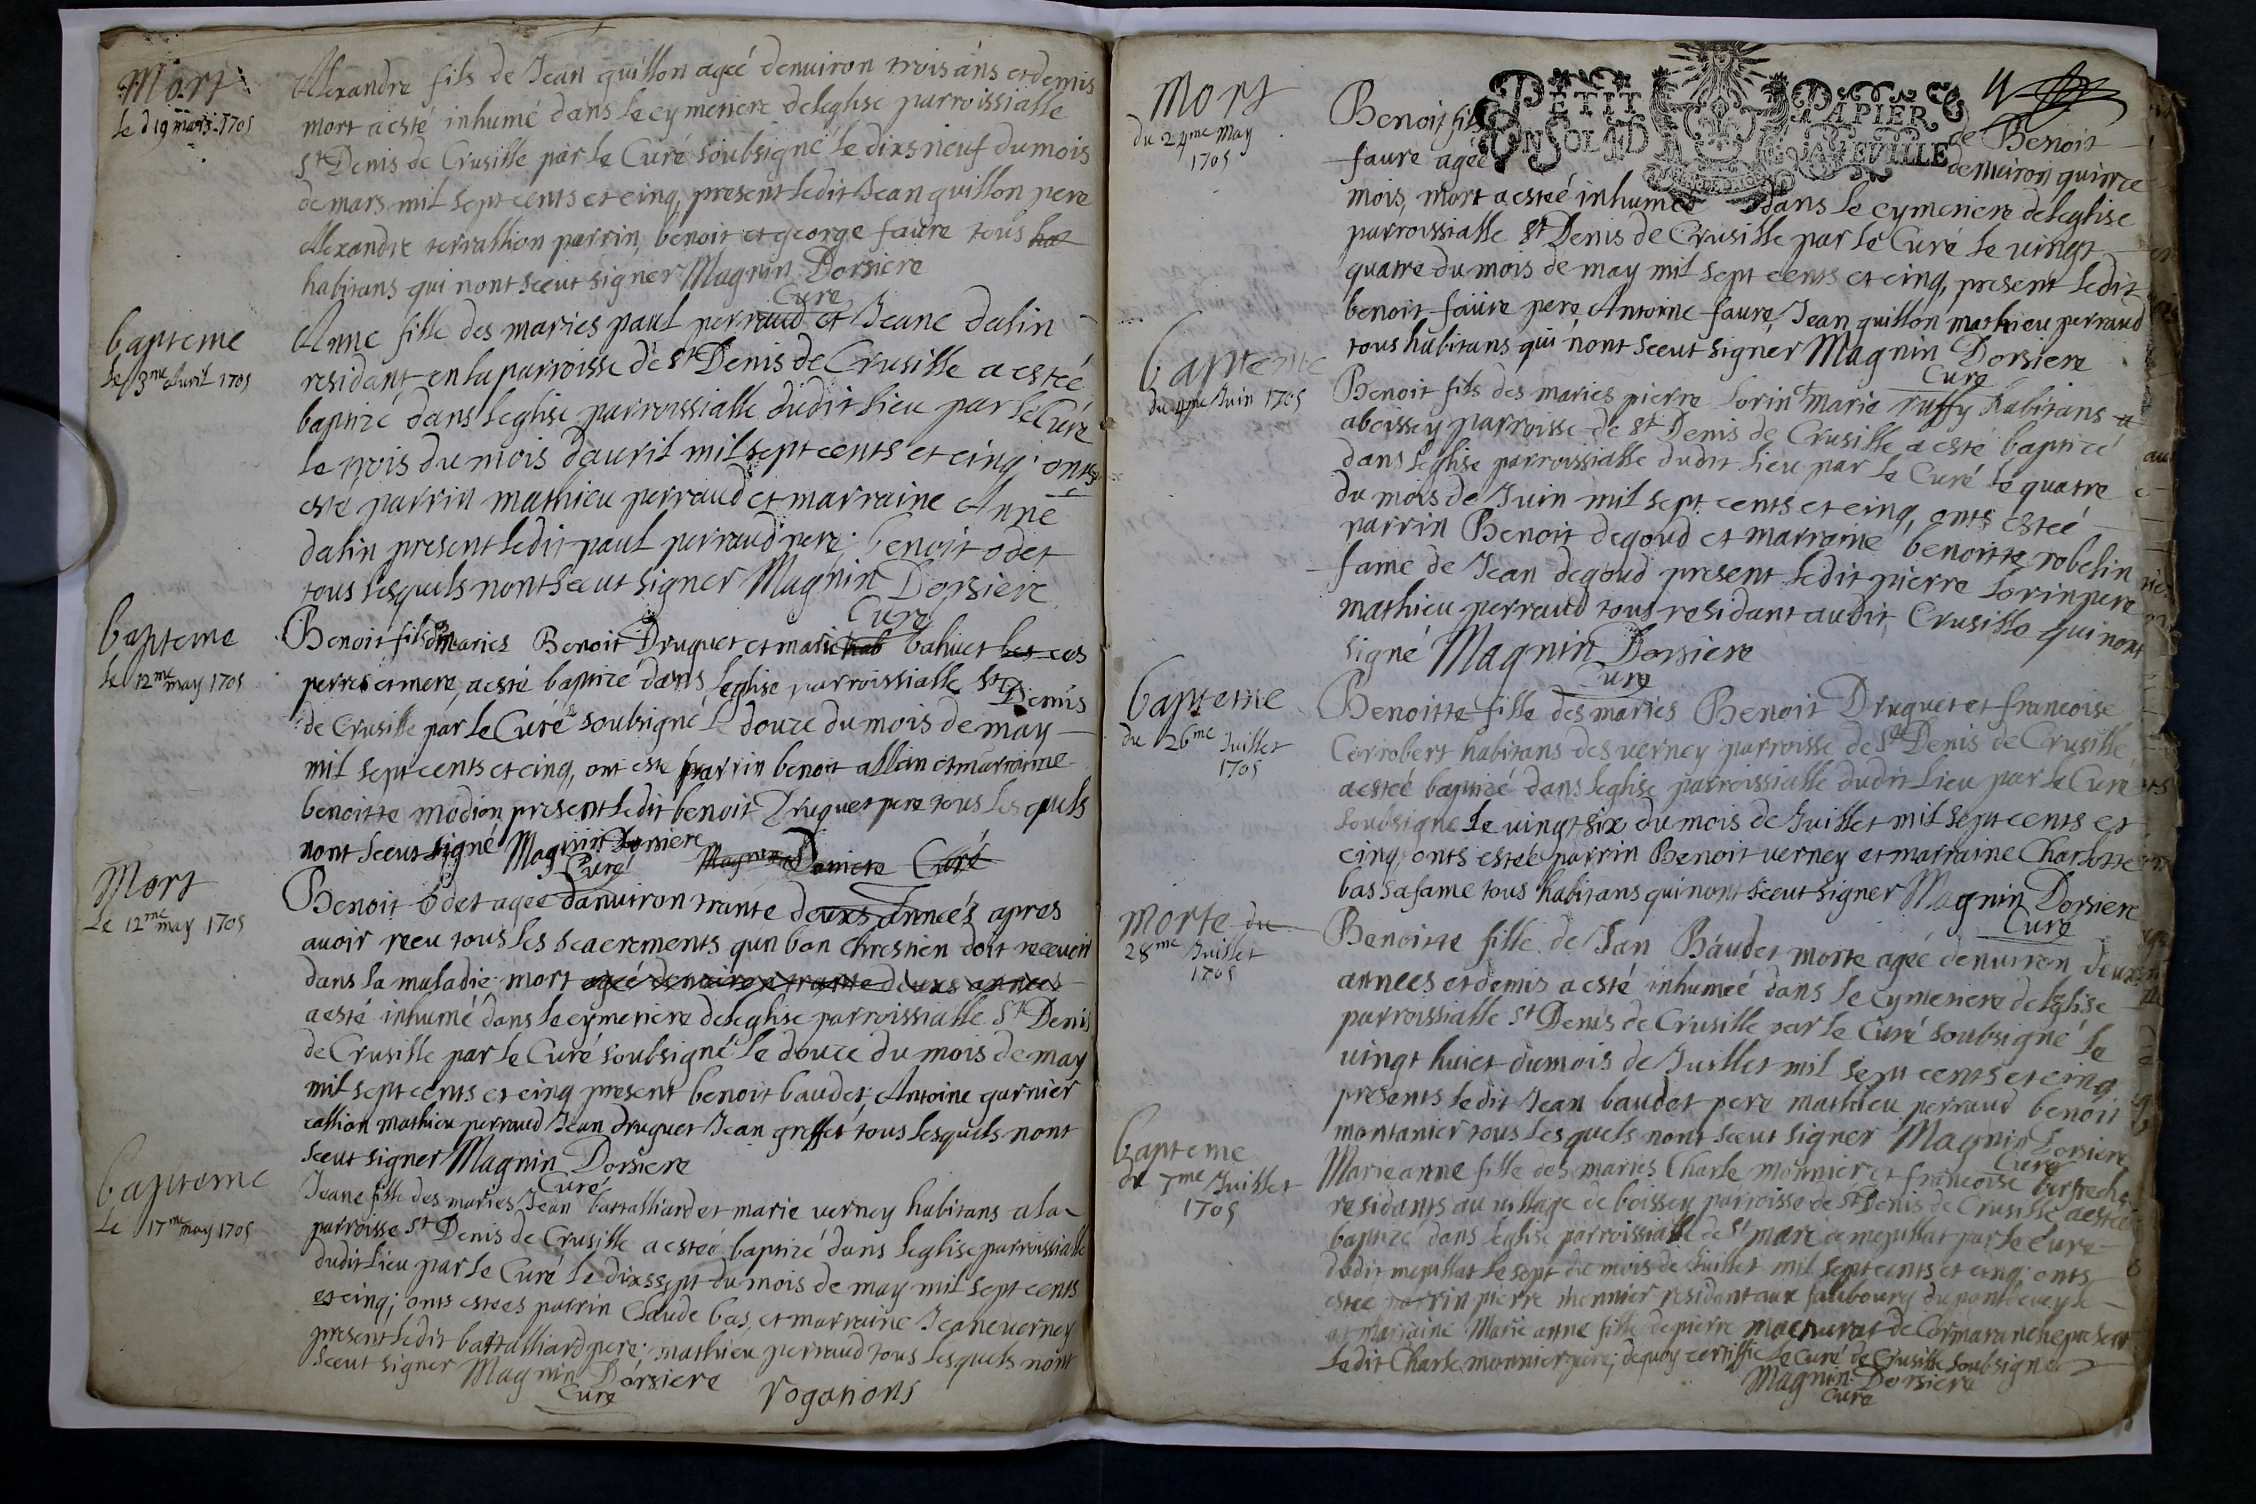 Mort
Le d 19 mars 1705
Alexandre fils de Jean guillon ageé denuiron trois ans et demis
mort a esté inhumé dans le cymetiere deleglise parroissialle
St Denis de Crusille par le Curé soubsigné le dixsneuf du mois
de mars mil sept cents et cinq, present ledit Jean guillon pere
Alexandre terrallion parrin, benoit et george faure tous hab
habitans qui nont sceut signer Magnin Dorsiere
Cure
bapteme
Le 3me Auril 1705
Anne fille des maries paul perraud et Jeane dalin
residant en la parroisse de St Denis de Crusille a estéé
baptizé dans leglise parroissialle dudit lieu par le Curé
le trois du mois dauril mil sept cents et cinq, onts
esté parrin mathieu perraud et marraine Anne
dalin present ledit paul perraud pere; benoit odet
tous lesquels nont sceut signer Magnin Dorsiere
Cure
bapteme
Le 12me may 1705
Benoit fils des maries Benoit Druguet et marie hab bahuet les ces
perres et mere, a esté baptizé dans leglise parroissialle St Denis
de Crusille par le Curé soubsigné le douze du mois de may
mil sept cents et cinq, ont esté parrin benoit allein et marraine
benoitte modion present ledit benoit Druguet pere tous lesquels
nont sceut signé Magnin Dorsiere Magnin Dorsiere Curé
Curé
Mort
Le 12me may 1705
Benoit Odet agee danuiron trante deuxs années apres
auoir receu tous les seacrements qun bon chrestien doit receuoir
dans la maladie mort ageé denuiron trante deuxs années
a esté inhumé dans le cymetiere deleglise parroissialle St Denis
de Crusille par le Curé soubsigné le douze du mois de may
mil sept cents et cinq present benoit baudet, Antoine garnier
callion mathieu perraud Jean druguet Jean greffet tous lesquels nont
sceut signer Magnin Dorsiere
Curé
bapteme
Le 17me may 1705
Jeane fille des maries Jean battalliard et marie verney habitans a la
parroisse St Denis de Crusille a esteé baptizé dans leglise parroissialle
dudit lieu par le Curé le dixssept du mois de may mil sept cents
et cinq; onts estees parrin Claude bas, et marraine Jeane verney
present ledit battalliard pere; mathieu perraud tous lesquels nont
sceut signer Magnin Dorsiere
Cure
rogations
PETIT PAPIER
UN SOL LA FEUILLE
Mort
du 24me may
1705
Benoit fils de Benoit
faure ageé denuiron quinze
mois, mort a esteé inhumé dans le cymetiere deleglise
parroissialle St Denis de Crusille par le Curé le vingt
quatre du mois de may mil sept cents et cinq, present ledit
benoit faure pere, Antoine faure, Jean guillon mathieu perraud
tous habitans qui nont sceut signer Magnin Dorsiere
Cure
bapteme
du 4me Juin 1705
Benoit fils des maries pierre Lorin et marie ruffy habitans a
aboissey parroisse de St Denis de Crusille a esté baptizé
dans leglise parroissialle dudit lieu par le Curé le quatre
du mois de Juin mil sept cents et cinq, onts esteé
parrin Benoit degoud et marraine benoitte robelin
fame de Jean degoud present ledit pierre Lorin pere
mathieu perraud tous residant audit Crusille qui nont
signé Magnin Dorsiere
Cure
bapteme
du 26me Juillet
1705
Benoitte fille des maries Benoit Druguet et francoise
Corrobert habitans des verney parroisse de St Denis de Crusille
a esteé baptizé dans leglise parroissialle dudit lieu par le Curé
soubsigne le vingt six du mois de Juillet mil sept cents et
cinq, onts estée parrin Benoit verney et marraine Charlotte
bas sa fame tous habitans qui nont sceut signer Magnin Dorsiere
Cure
Morte du
28me Juillet
1705
Benoitte fille de Jan Baudet morte ageé denuiron deux
annees et demis a esté inhumeé dans le cymetiere deleglise
parroissialle St Denis de Crusille par le Curé soubsigné le
vingt huict du mois de Juillet mil sept cents et cinq
presents ledit Jean baudet pere mathieu perraud benoit
montanier tous lesquels nont sceut signer Magnin Dorsiere
Cure
bapteme
du 7me Juillet
1705
Marie anne fille des maries Charle monnier et francoise
residants au village de boissey parroisse de St Denis de Crusille a esteé
baptizé dans leglise parroissialle de St marc de mepillat par le Cure
dudit mepillat le sept du mois de Juillet mil sept cents et cinq; onts
estee parrin pierre monnier resident aux faubourg du pontdeueyle
et marraine Marie anne fille de pierre de Cormaranche present
ledit Charle monnier pere; dequoy certiffie le Curé de Crusille soubsigné
Magnin Dorsiere
Cure